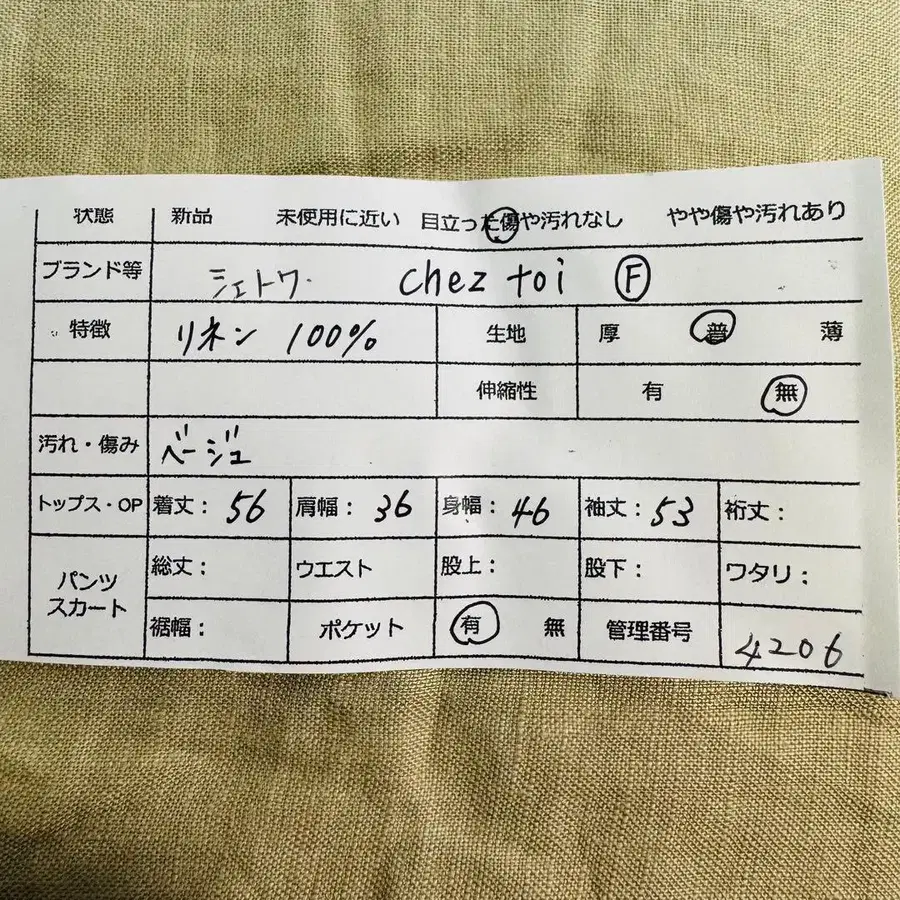 状態 新品 未使用に近い 目立った傷や汚れなし やや傷や汚れあり
ブランド等 シェトワ. chez toi F
特徴 リネン 100% 生地 厚 普 薄
伸縮性 有 無
汚れ・傷み ベージュ
トップス・OP 着丈: 56 肩幅: 36 身幅: 46 袖丈: 53 裄丈:
パンツ スカート 総丈: ウエスト 股上: 股下: ワタリ:
裾幅: ポケット 有 無 管理番号 4206